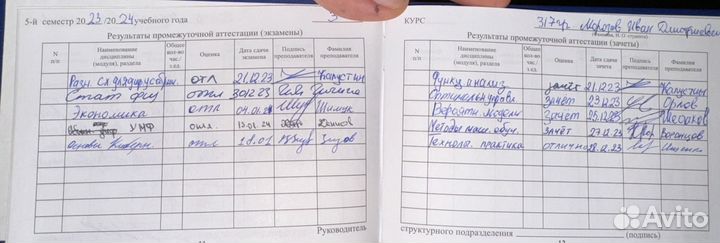 5-й семестр 2023/2024 учебного года 3
Результаты промежуточной аттестации (экзамены)
N п/п Наименование дисциплины (модуля), раздела Общее кол-во час./з.ед. Оценка Дата сдачи экзамена Подпись преподавателя Фамилия преподавателя
отл 21.12.23 Капустин
Стат физ отл 30.12.23
Экономика отл 04.01. Шишук
УМФ отл. 13.01.24 Денисов
Основы киберн. отл 18.01
Руководитель
11
КУРС 317гр. Морозов Иван Дмитриевич
(фамилия, И. О. студента)
Результаты промежуточной аттестации (зачеты)
N п/п Наименование дисциплины (модуля), раздела Общее кол-во час./з.ед. Оценка Дата сдачи зачета Подпись преподавателя Фамилия преподавателя
Функц анализ зачёт 21.12.23 Капустин
зачет 23.12.23 Орлов
Вероятн. модели Зачет 25.12.23
Методы маш. обуч. зачёт 27.12.23 Воронцов
Технолог. практика отлично 28.12.23
структурного подразделения
(подпись)
12
Avito